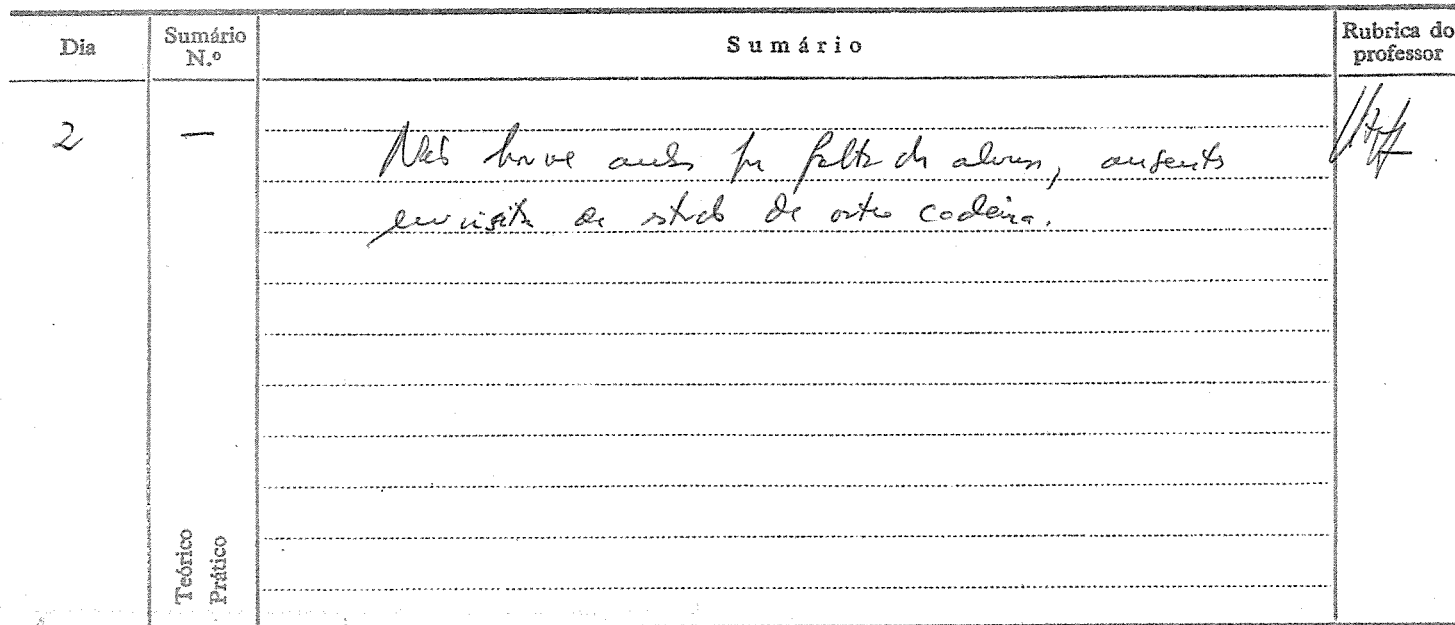 Dia
Sumário N.º
Sumário
Rubrica do professor
2
—
Não houve aula por falta de alunos, ausentes
em visita de estudo de outra cadeira.
Teórico
Prático